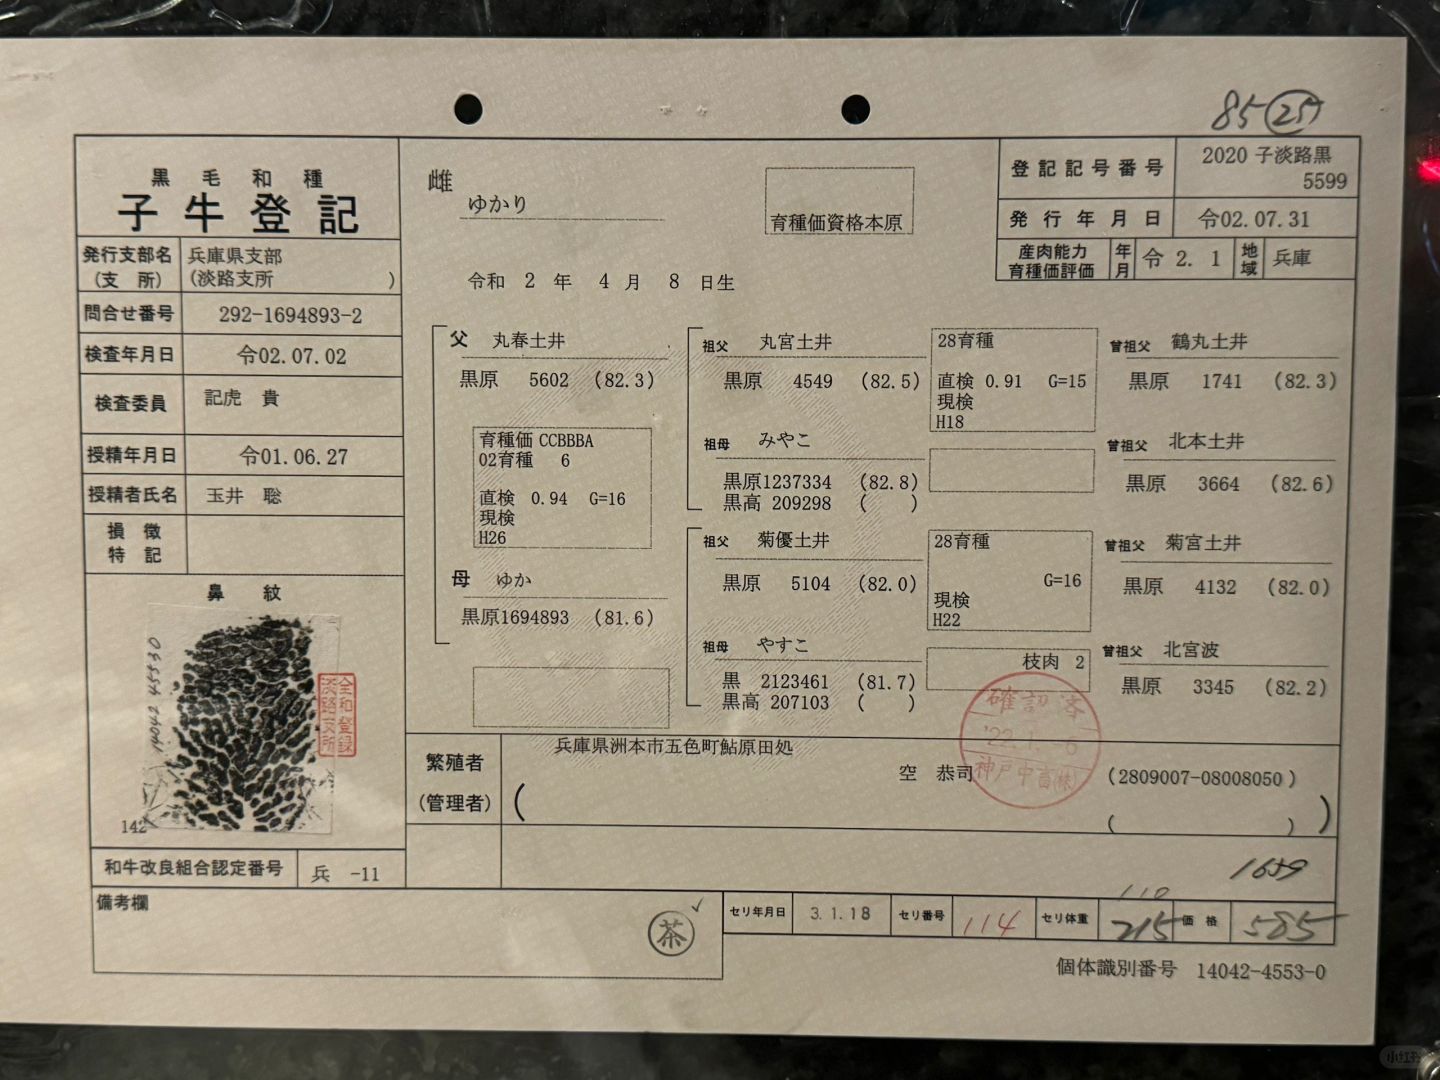 85 25
黒毛和種
子牛登記
雌
ゆかり
育種価資格本原
登記記号番号 2020 子淡路黒
5599
発行年月日 令02.07.31
産肉能力
育種価評価 年月 令 2. 1 地域 兵庫
発行支部名 兵庫県支部
(支 所) (淡路支所 )
問合せ番号 292-1694893-2
検査年月日 令02.07.02
検査委員 記虎 貴
授精年月日 令01.06.27
授精者氏名 玉井 聡
損徴
特記
鼻紋
14042 45530
全和登録
淡路支所
142
和牛改良組合認定番号 兵 -11
令和 2 年 4 月 8 日生
父 丸春土井
黒原 5602 (82.3)
育種価 CCBBBA
02育種 6
直検 0.94 G=16
現検
H26
母 ゆか
黒原1694893 (81.6)
祖父 丸宮土井
黒原 4549 (82.5)
28育種
直検 0.91 G=15
現検
H18
祖母 みやこ
黒原1237334 (82.8)
黒高 209298 ( )
祖父 菊優土井
黒原 5104 (82.0)
28育種
G=16
現検
H22
祖母 やすこ
黒 2123461 (81.7)
黒高 207103 ( )
枝肉 2
曾祖父 鶴丸土井
黒原 1741 (82.3)
曾祖父 北本土井
黒原 3664 (82.6)
曾祖父 菊宮土井
黒原 4132 (82.0)
曾祖父 北宮波
黒原 3345 (82.2)
確認済
神戸中畜(株)
繁殖者
(管理者)
兵庫県洲本市五色町鮎原田処
空 恭司 (2809007-08008050)
( )
1659
備考欄
茶
セリ年月日 3.1.18 セリ番号 114 セリ体重 110 215 価格 585
個体識別番号 14042-4553-0
小红书